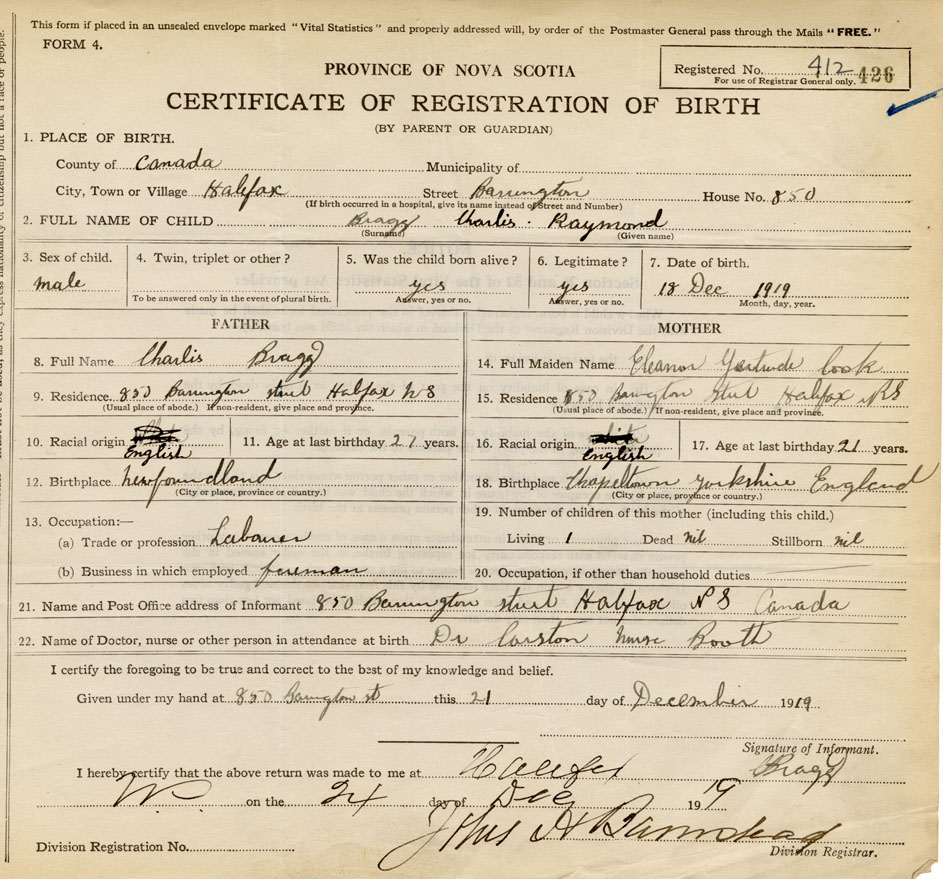 This form if placed in an unsealed envelope marked "Vital Statistics" and properly addressed will, by order of the Postmaster General pass through the Mails "FREE."
FORM 4.
Registered No. 412 426
For use of Registrar General only.
PROVINCE OF NOVA SCOTIA
CERTIFICATE OF REGISTRATION OF BIRTH
(BY PARENT OR GUARDIAN)
1. PLACE OF BIRTH.
County of Canada Municipality of
City, Town or Village Halifax Street Barrington House No. 850
(If birth occurred in a hospital, give its name instead of Street and Number)
2. FULL NAME OF CHILD Bragg Charlis Raymond
(Surname) (Given name)
3. Sex of child. 4. Twin, triplet or other? 5. Was the child born alive? 6. Legitimate? 7. Date of birth.
male yes yes 18 Dec 1919
To be answered only in the event of plural birth. Answer, yes or no. Answer, yes or no. Month, day, year.
FATHER MOTHER
8. Full Name Charlis Bragg 14. Full Maiden Name Eleanor Gertrude Cook
9. Residence. 850 Barrington street Halifax NS 15. Residence 850 Barington Street Halifax NS
(Usual place of abode.) If non-resident, give place and province. (Usual place of abode.) If non-resident, give place and province.
10. Racial origin English 11. Age at last birthday 27 years. 16. Racial origin English 17. Age at last birthday 21 years.
12. Birthplace Newfoundland 18. Birthplace Chapeltown Yorkshire England
(City or place, province or country.) (City or place, province or country.)
13. Occupation:— 19. Number of children of this mother (including this child.)
(a) Trade or profession Labourer Living 1 Dead nil Stillborn nil
(b) Business in which employed foreman 20. Occupation, if other than household duties
21. Name and Post Office address of Informant 850 Barrington street Halifax NS Canada
22. Name of Doctor, nurse or other person in attendance at birth Dr Corston Nurse Booth
I certify the foregoing to be true and correct to the best of my knowledge and belief.
Given under my hand at 850 Barington st this 21 day of December 1919
Signature of Informant.
C Bragg
I hereby certify that the above return was made to me at Halifax
on the 24 day of Dec 1919
Division Registration No.
Division Registrar.